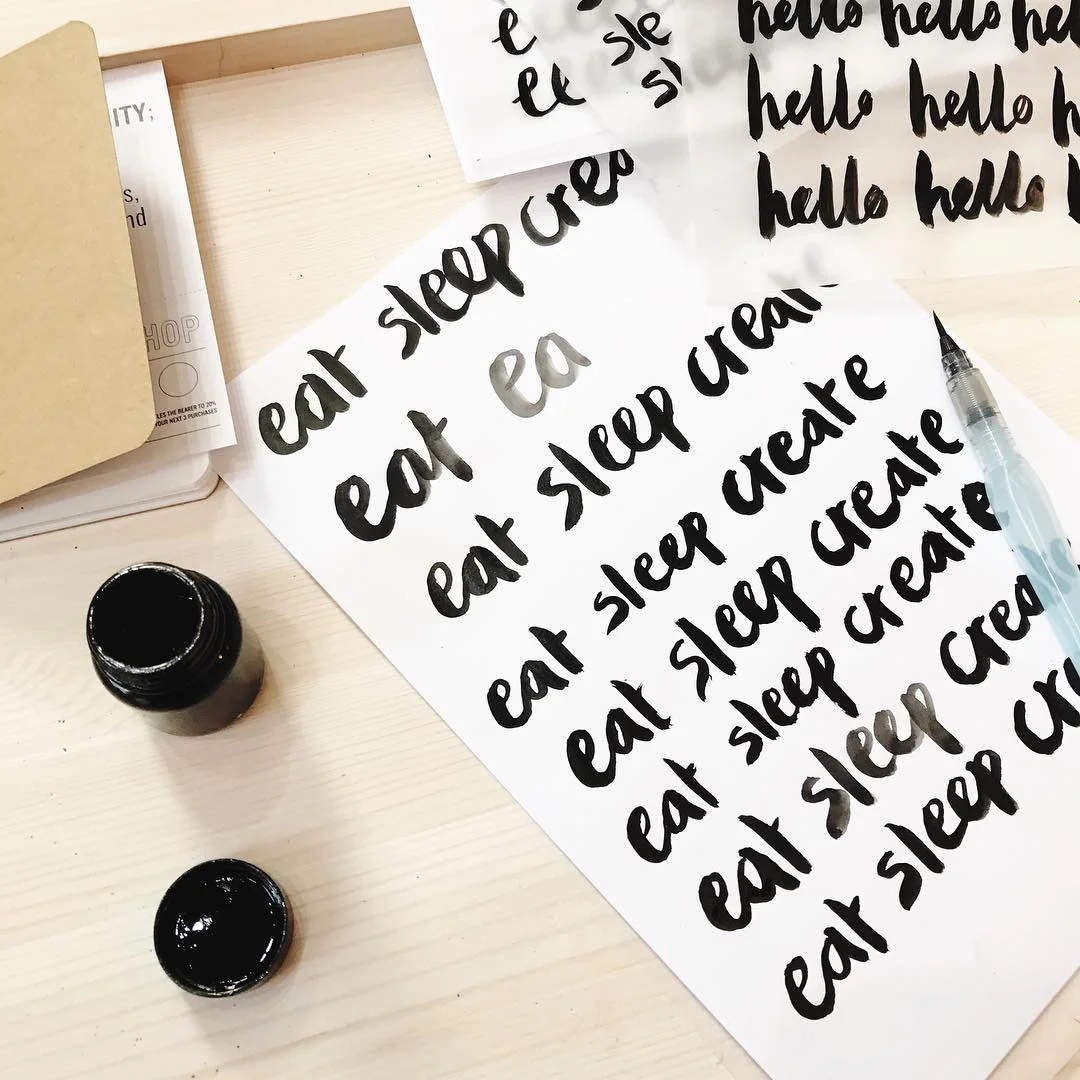 hello hello hel
hello hello h
hello hello
e
sle
ee
eat sleep crea
eat ea
eat sleep create
eat sleep create
eat sleep create
eat sleep create
eat sleep crea
eat sleep cre
ITY;
s,
nd
HOP
LES THE BEARER TO 20%
YOUR NEXT 3 PURCHASES